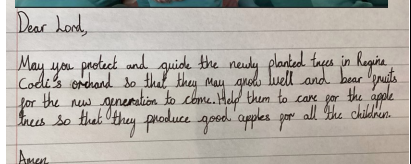 Dear Lord,
May you protect and guide the newly planted trees in Regina
Coeli's orchard so that they may grow well and bear fruits
for the new generation to come. Help them to care for the apple
trees so that they produce good apples for all the children.
Amen